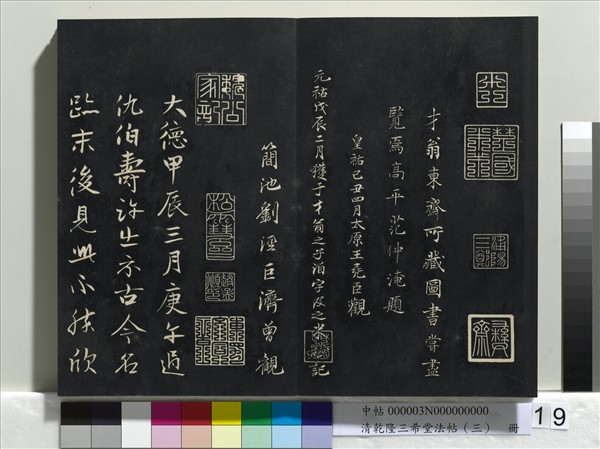 才翁東齋所藏圖書嘗盡
覽焉高平范仲淹題
皇祐己丑四月太原王堯臣觀
元祐戊辰二月獲于才翁之子泊字及之米記
簡池劉涇巨濟曾觀
大德甲辰三月庚午過
仇伯壽許出示古今名
跡末後見此不勝欣
彝齋
中帖 000003N000000000
清乾隆三希堂法帖（三） 冊
19